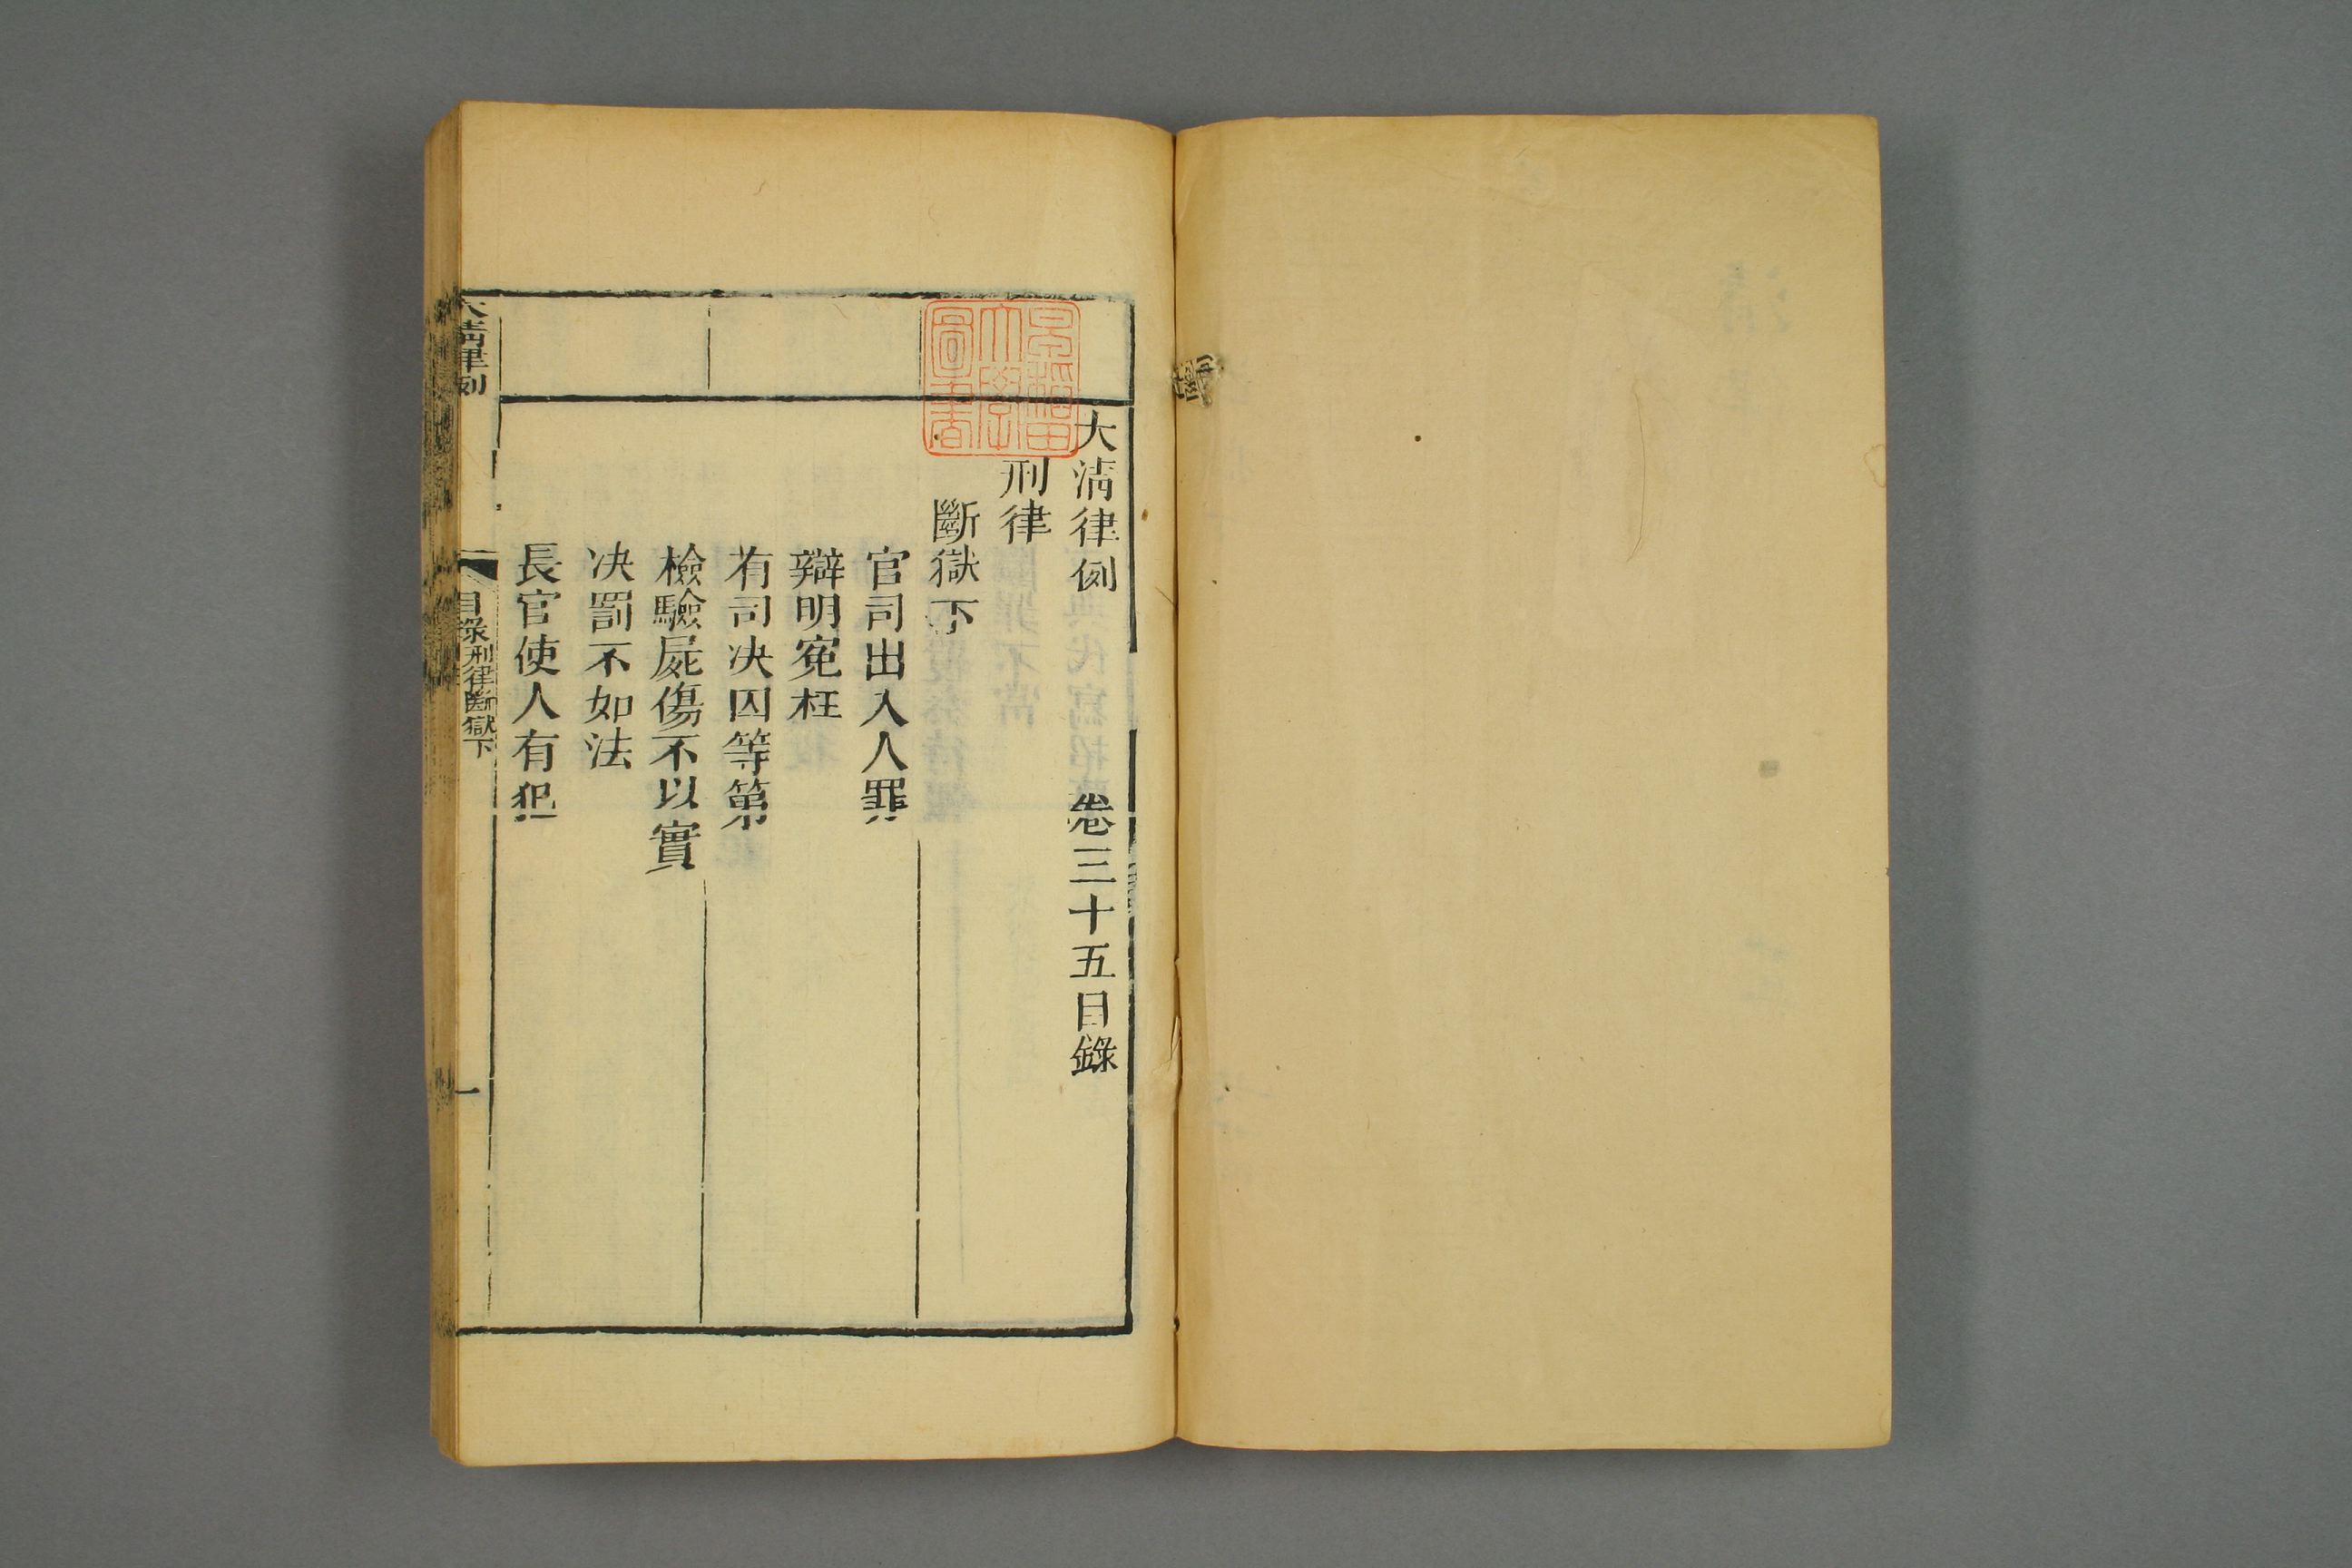 大清律例 卷三十五目錄
刑律
斷獄下
官司出入人罪
辯明寃枉
有司决囚等第
檢驗屍傷不以實
决罰不如法
長官使人有犯
大清律例 目錄 刑律斷獄下 一
早稻田
大學
圖書